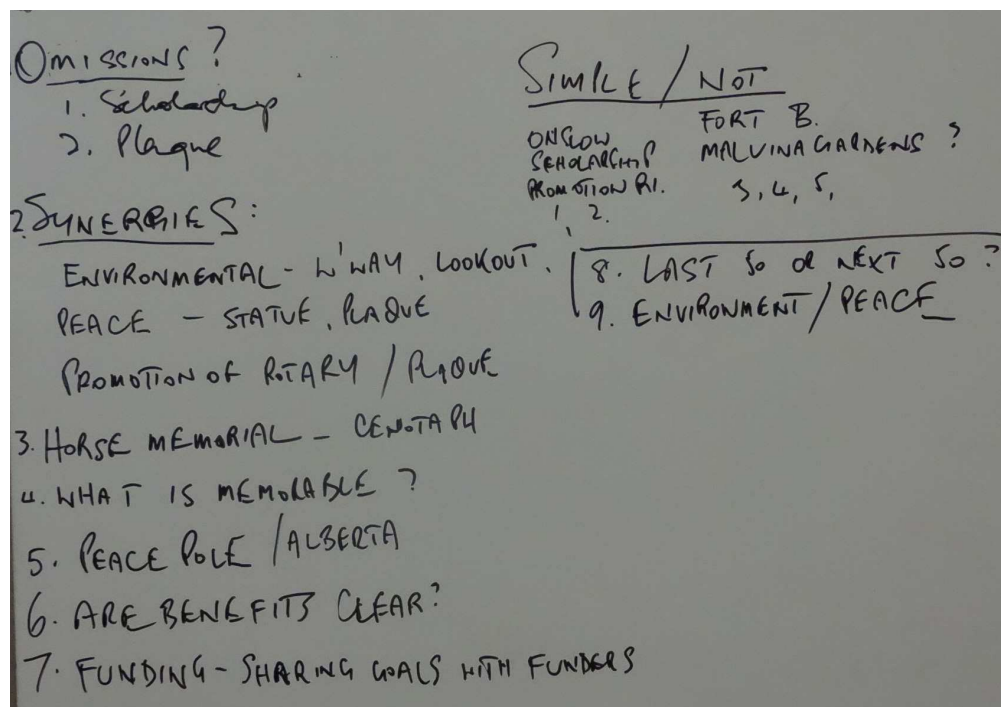 OMISSIONS?
1. Scholarship
2. Plaque
2. SYNERGIES:
ENVIRONMENTAL - W'WAY, LOOKOUT,
PEACE - STATUE, PLAQUE
PROMOTION OF ROTARY / PLAQUE
3. HORSE MEMORIAL - CENOTAPH
4. WHAT IS MEMORABLE?
5. PEACE POLE / ALBERTA
6. ARE BENEFITS CLEAR?
7. FUNDING - SHARING GOALS WITH FUNDERS
SIMPLE / NOT
ONSLOW
SCHOLARSHIP
PROMOTION RI.
1, 2.
FORT B.
MALVINA GARDENS ?
3, 4, 5,
8. LAST 50 OR NEXT 50 ?
9. ENVIRONMENT / PEACE